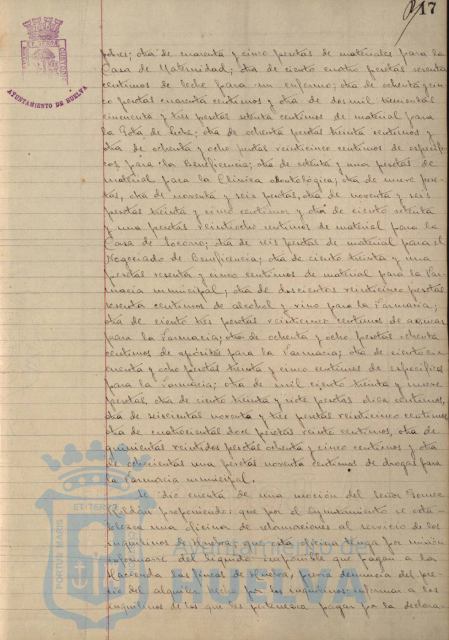 17
AYUNTAMIENTO DE HUELVA
pobres; otra de cuarenta y cinco pesetas de materiales para la
Casa de Maternidad; otra de ciento cuatro pesetas sesenta
centimos de leche para un enfermo; otra de ochenta y cin
co pesetas cuarenta centimos y otra de dos mil
cincuenta y tres pesetas setenta centimos de material para
la Gota de Leche; otra de ochenta pesetas treinta centimos y
otra de ochenta y ocho pesetas veinticinco centimos de especifi
cos para la Beneficencia; otra de setenta y una pesetas de
material para la Clinica odontológica; otra de nueve pese
tas, otra de noventa y seis pesetas, otra de noventa y seis
pesetas treinta y cinco centimos y otra de ciento setenta
y una pesetas veintiocho centimos de material para la
Casa de Socorro; otra de seis pesetas de material para el
Negociado de Beneficencia; otra de ciento treinta y una
pesetas sesenta y cinco centimos de material para la Far
macia municipal; otra de doscientas veinticinco pesetas
sesenta centimos de alcohol y vino para la Farmacia;
otra de ciento tres pesetas veinticinco centimos de azucar
para la Farmacia; otra de ochenta y ocho pesetas ochenta
centimos de apósitos para la Farmacia; otra de ciento cin
cuenta y ocho pesetas treinta y cinco centimos de especificos
para la Farmacia; otra de mil ciento treinta y nueve
pesetas, otra de ciento treinta y siete pesetas doce centimos,
otra de seiscientas noventa y tres pesetas veinticinco centimos
otra de cuatrocientas doce pesetas centimos, otra de
quinientas veintidos pesetas ochenta y cinco centimos y otra
de una pesetas noventa centimos de drogas para
la Farmacia municipal.
Se dió cuenta de una moción del Señor Ponce
Roldán proponiendo: que por el Ayuntamiento se esta-
blezca una oficina de reclamaciones al servicio de los
inquilinos de Huelva; que esta oficina tenga por misión
informarse del liquido imponible que pagan a la
Hacienda las fincas de Huelva, previa denuncia del pre
cio del alquiler hecho por los inquilinos; informar a los
inquilinos de los que les pertenezca pagar por la declara-
Ayuntamiento de
HUELVA
PORTUS MARIS ET TERRAE